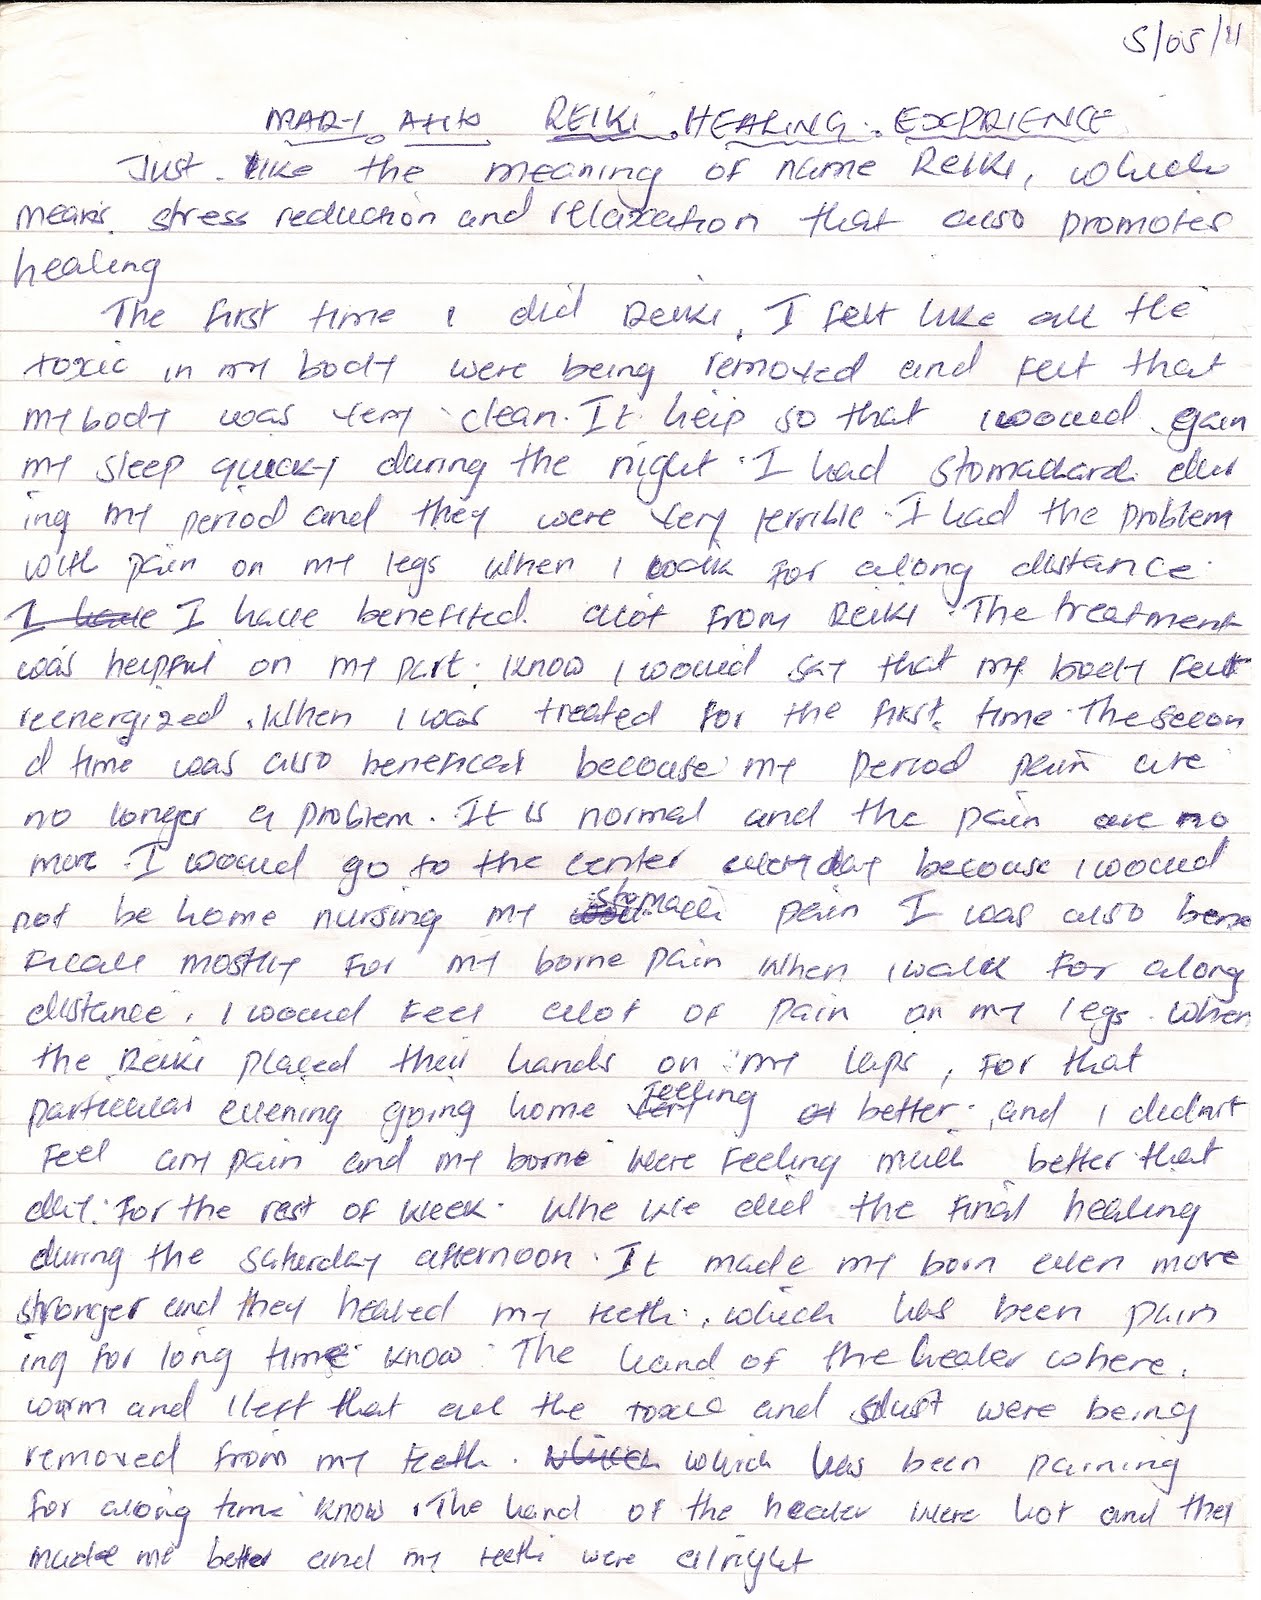 5/05/11
MARY ATITO REIKI HEALING EXPRIENCE
Just like the meaning of name Reiki, which
means stress reduction and relaxation that also promotes
healing
The first time I did Reiki, I felt like all the
toxic in my body were being removed and felt that
my body was very clean. It help so that I would gain
my sleep quickly during the night. I had dur
ing my period and they were very terrible. I had the problem
with pain on my legs when I walk for along distance.
I have I have benefited alot from Reiki. The treatment
was helpful on my part. know I would say that my body felt
reenergized. When I was treated for the first time. The secon
d time was also benefical because my period pain are
no longer a problem. It is normal and the pain are no
more. I would go to the center everyday because I would
not be home nursing my stomach pain I was also bene
ficall mostly for my borne pain when I walk for along
distance. I would feel alot of pain on my legs. When
the Reiki placed their hands on my laps, for that
particular evening going home feeling better. and I didn't
feel any pain and my borne were feeling much better that
day. For the rest of week. Whe we did the final healing
during the Saturday afternoon. It made my born even more
stronger and they healed my teeth. which has been pain
ing for long time know. The hand of the healer where
warm and I left that all the toxic and dust were being
removed from my teeth. which which has been paining
for along time know. The hand of the healer were hot and they
made me better and my teeth were alright